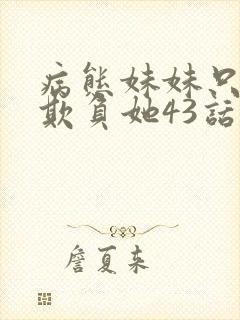 病態妹妹只
欺負她43話
詹夏來